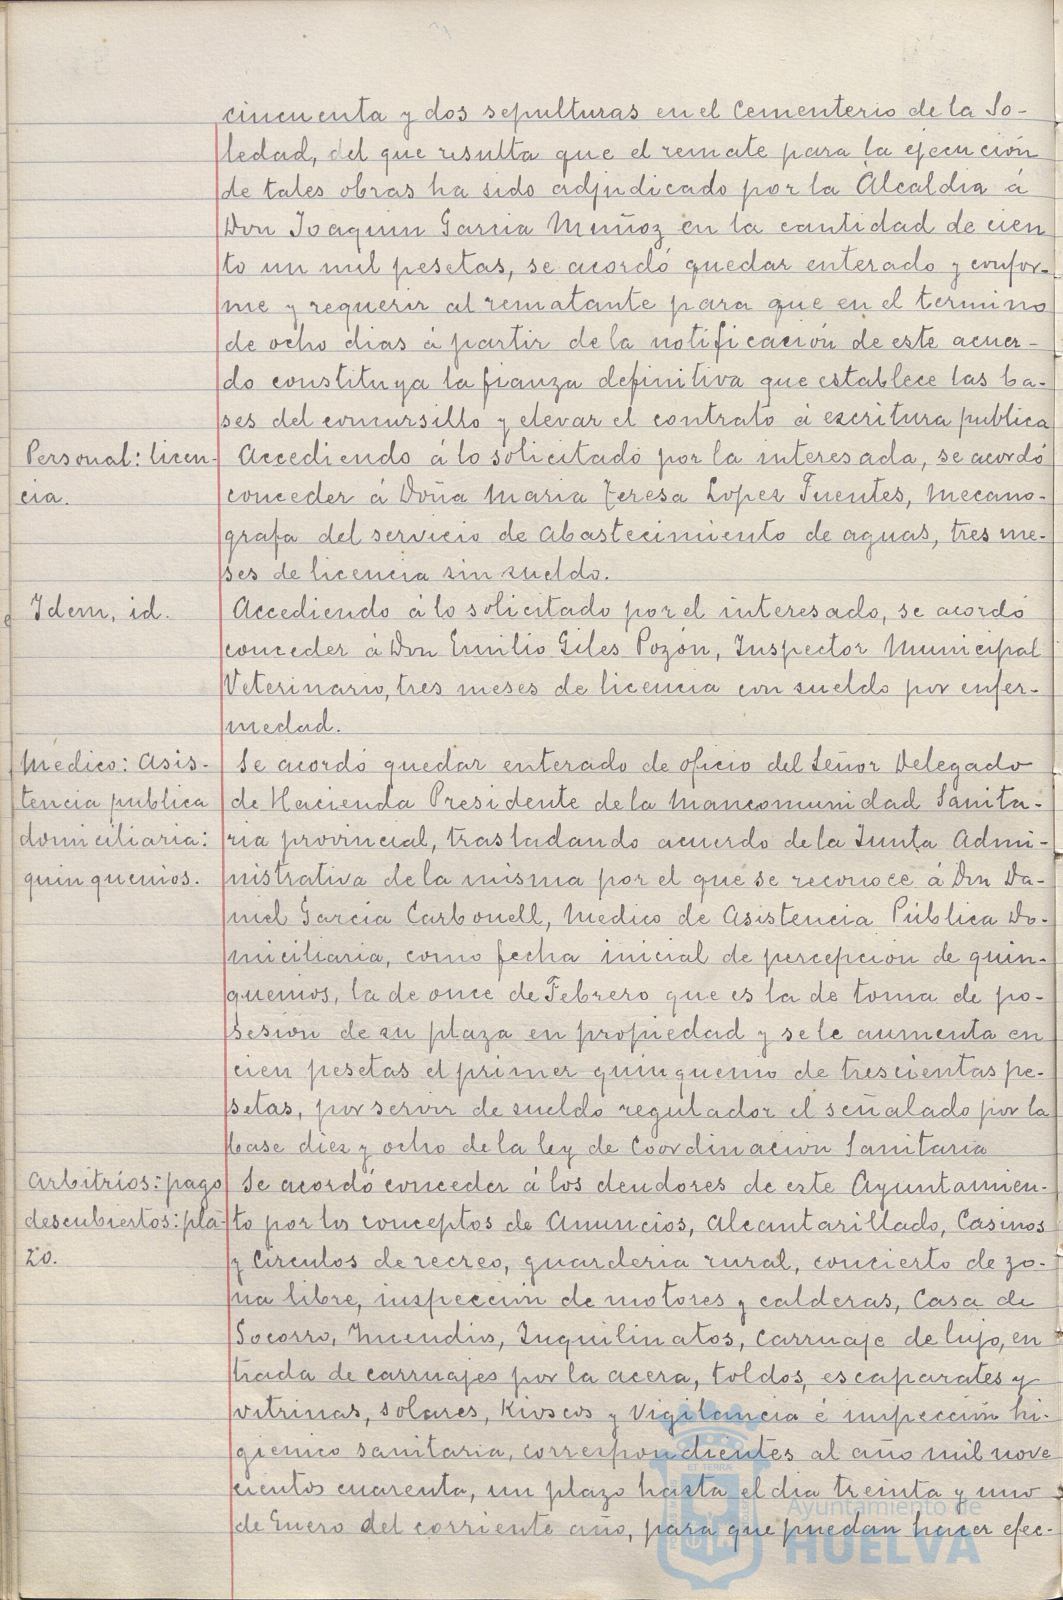 cincuenta y dos sepulturas en el Cementerio de la So-
ledad, del que resulta que el remate para la ejecución
de tales obras ha sido adjudicado por la Alcaldia á
Don Joaquin Garcia Muñoz en la cantidad de cien
to un mil pesetas, se acordó quedar enterado y confor-
me y requerir al rematante para que en el termino
de ocho dias á partir de la notificación de este acuer-
do constituya la fianza definitiva que establece las ba-
ses del concursillo y elevar el contrato á escritura publica
Personal: licen-
cia.
Accediendo á lo solicitado por la interesada, se acordó
conceder á Doña Maria Teresa Lopez Fuentes, Mecano-
grafa del servicio de abastecimiento de aguas, tres me-
ses de licencia sin sueldo.
Idem, id.
Accediendo á lo solicitado por el interesado, se acordó
conceder á Don Emilio Giles Pozón, Inspector Municipal
Veterinario, tres meses de licencia con sueldo por enfer-
medad.
Médico: Asis-
tencia publica
domiciliaria:
quinquenios.
Se acordó quedar enterado de oficio del Señor Delegado
de Hacienda Presidente de la Mancomunidad Sanita-
ria provincial, trasladando acuerdo de la Junta Admi-
nistrativa de la misma por el que se reconoce á Don Da-
niel García Carbonell, Medico de Asistencia Pública Do-
miciliaria, como fecha inicial de percepción de quin-
quenios, la de once de Febrero que es la de toma de po-
sesión de su plaza en propiedad y se le aumenta en
cien pesetas el primer quinquenio de trescientas pe-
setas, por servir de sueldo regulador el señalado por la
base diez y ocho de la ley de Coordinación Sanitaria
Arbitríos: pago
descubiertos: pla-
zo.
Se acordó conceder á los deudores de este Ayuntamien-
to por los conceptos de Anuncios, Alcantarillado, Casinos
y Circulos de recreo, guarderia rural, concierto de zo-
na libre, inspección de motores y calderas, Casa de
Socorro, Incendios, Inquilinatos, Carruaje de lujo, en
trada de carruajes por la acera, toldos, escaparates y
vitrinas, solares, Kioscos y Vigilancia é inspección hi-
gienico sanitaria, correspondientes al año mil nove
cientos cuarenta, un plazo hasta el dia treinta y uno
de Enero del corriente año, para que puedan hacer efec-
Ayuntamiento de
HUELVA